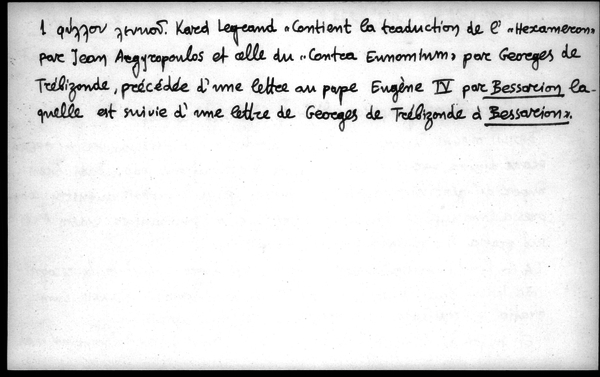 1 φύλλον λευκόν. Κατά Legrand «Contient la traduction de l' «Hexameron»
par Jean Argyropoulos et celle du «Contra Eunomium» par Georges de
Trébizonde, précédée d'une lettre au pape Eugène IV par Bessarion la-
quelle est suivie d'une lettre de Georges de Trébizonde à Bessarion».